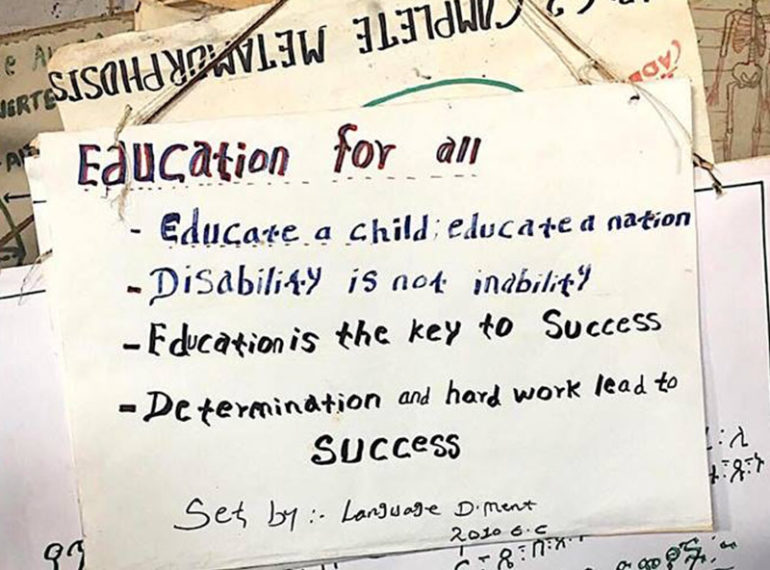 COMPLETE METAMORPHOSIS
Education for all
- Educate a child; educate a nation
- Disability is not inability
- Education is the key to Success
- Determination and hard work lead to
SUCCESS
Set by :- Language D.ment
2010 E.C